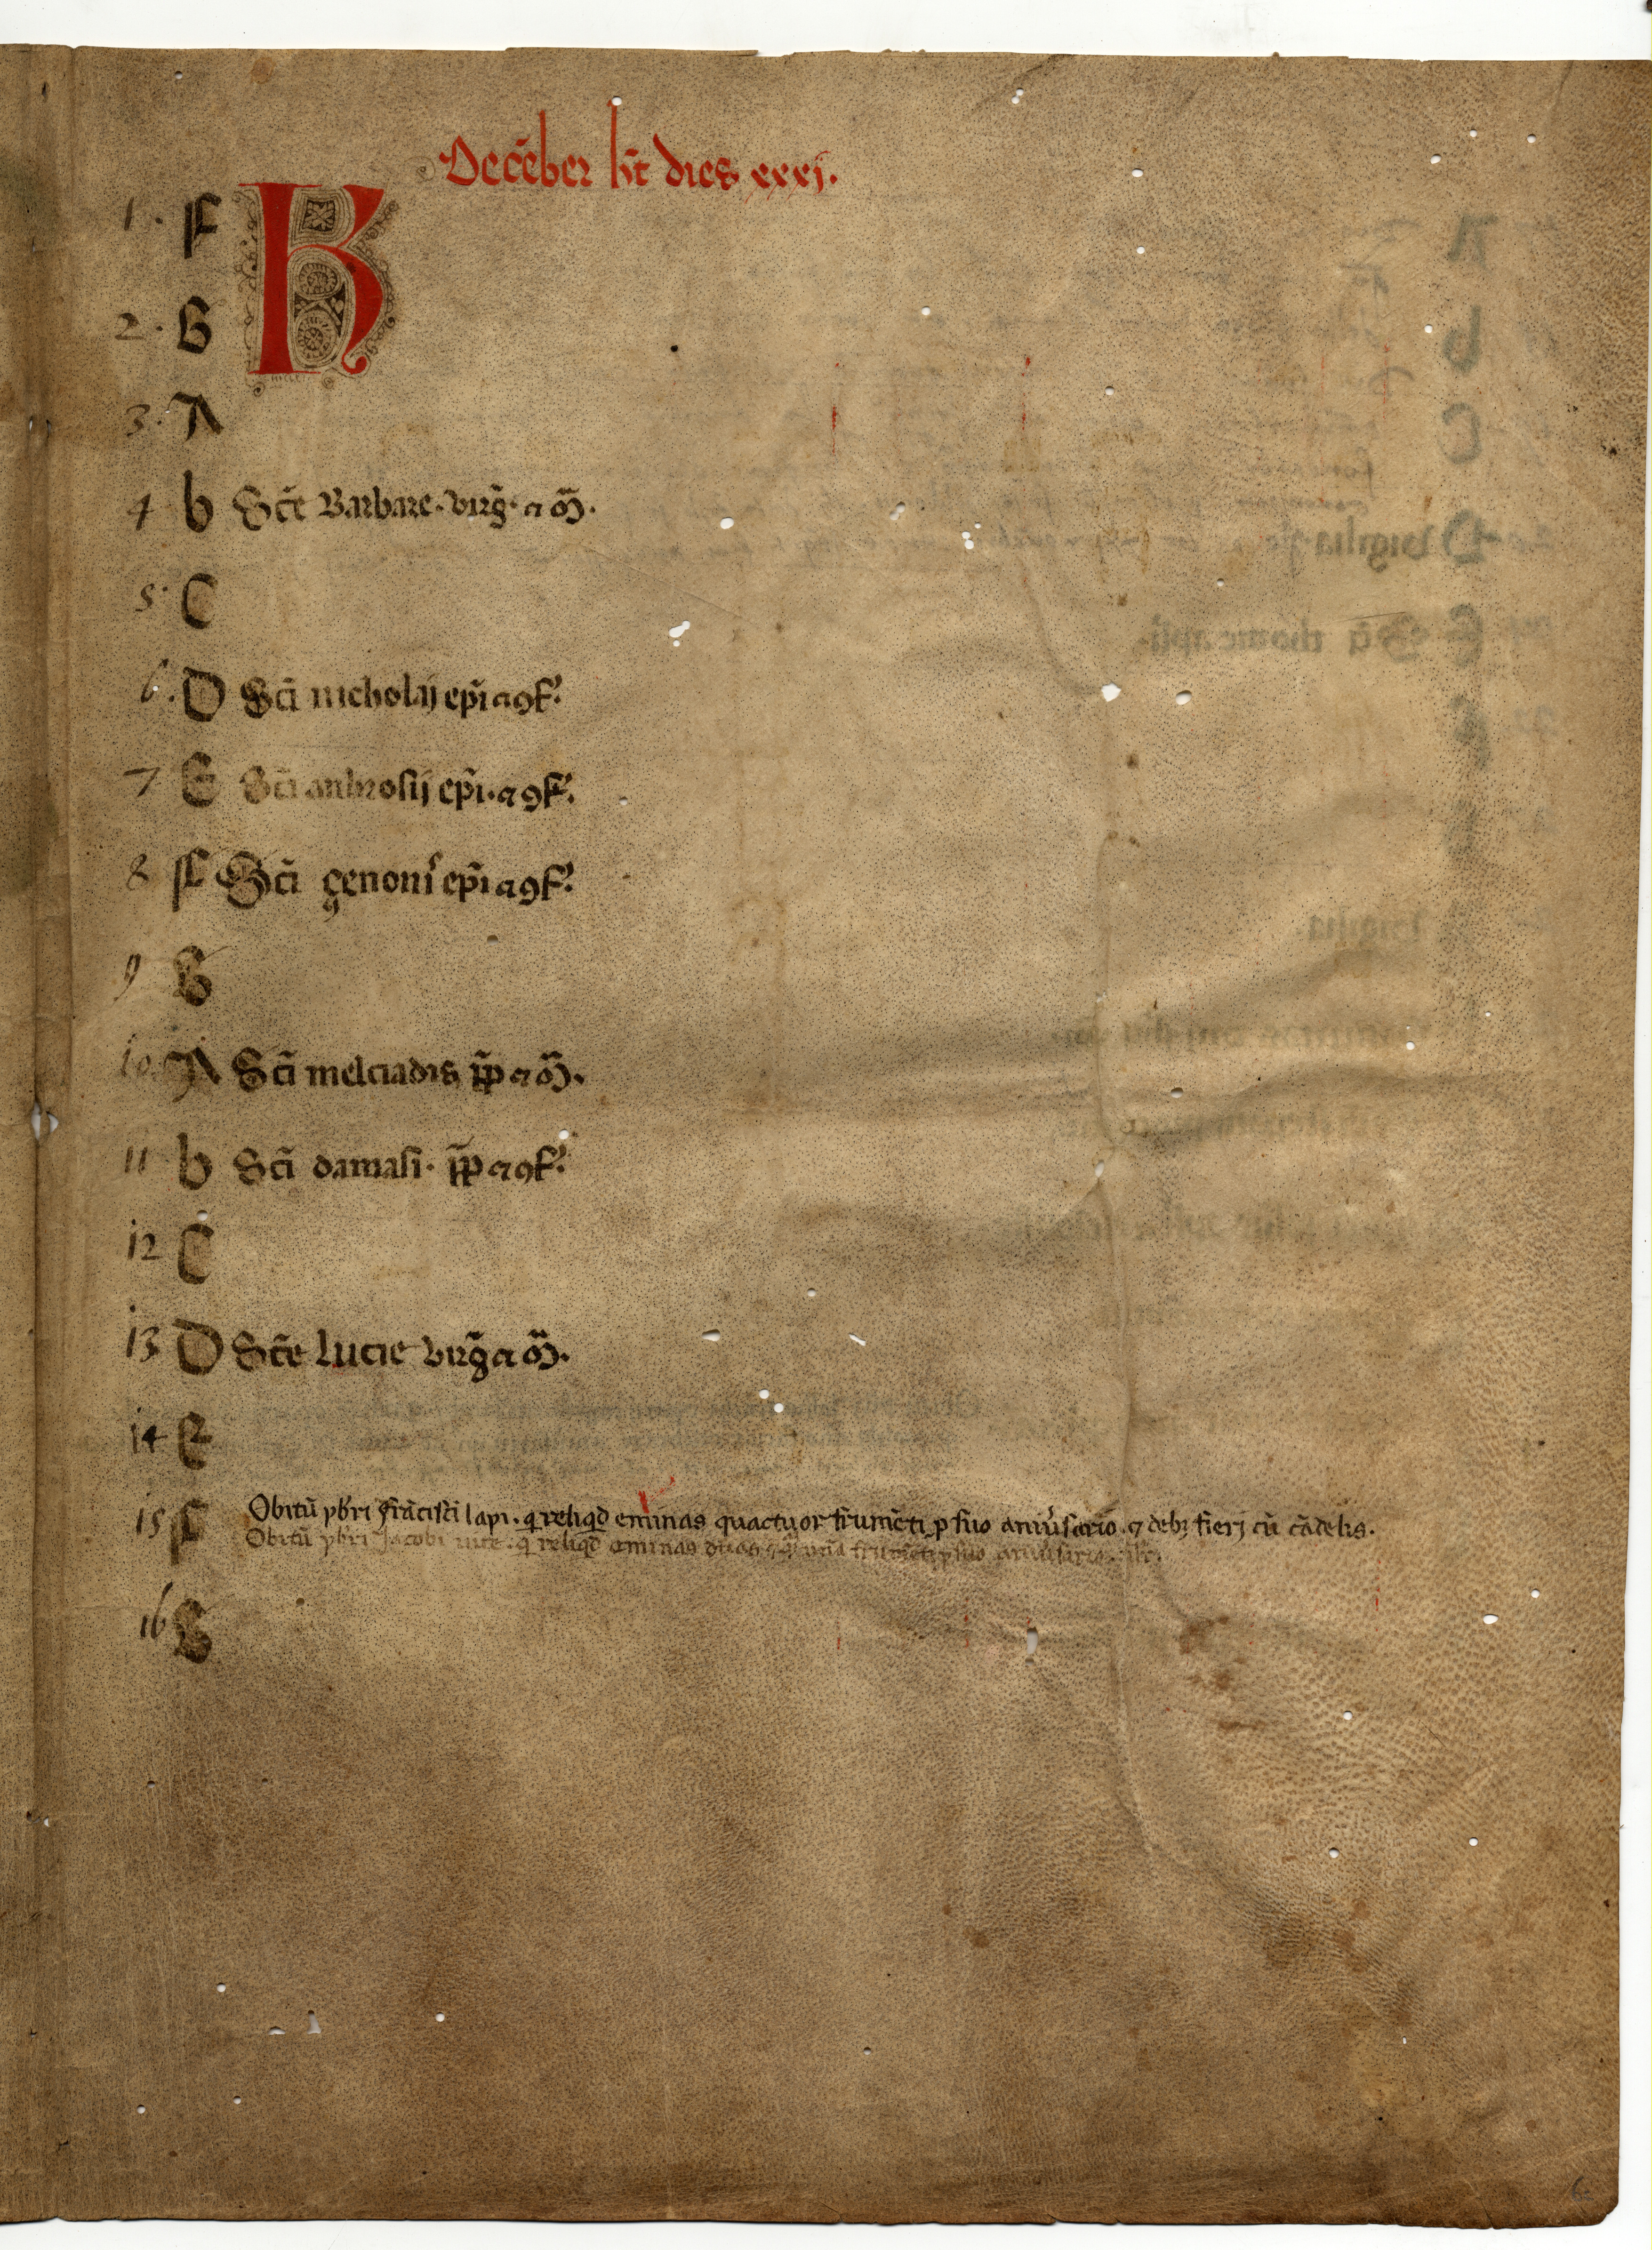 Decẽber hƷt dies xxxj.
K
1. F
2. G
3. A
4 b Scẽ Barbare. virg̃. ⁊ m̃.
5. C
6. D Scĩ nicholaij ep̃i ⁊ ꝯf.
7 E Scĩ anbrosij ep̃i. ⁊ ꝯf.
8 F Scĩ çenonis ep̃i ⁊ ꝯf.
9 G
10. A Scĩ melciadis p̃p ⁊ m̃.
11 b Scĩ damasi. p̃p ⁊ ꝯf.
12 C
13 D Scẽ lucie virg̃ ⁊ m̃.
14 E
15 F Obitũ pb̃ri frãcisci lapi. q̃ reliqd̃ eminas quactuor frumẽti p suo aniṽsario. ⁊ debꝫ fierj cũ cãdelis.
Obitũ pb̃ri Jacobi q̃ reliqd̃ eminas duas frumẽti p suo aniṽsario.
16 G